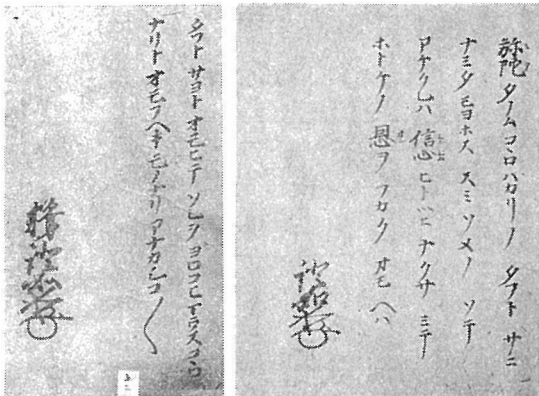 弥陀タノムコヽロハカリノ タフトサニ
ナミタモヨホス スミソメノ ソテ
アケクレハ 信心ヒトツニ ナクサミテ
ホトケノ恩ヲ フカク オモヘハ
タフトサヨトオモヒテ ソレヲヨロコヒマウスコヽロ
ナリト オモフヘキモノナリ アナカシコ〱